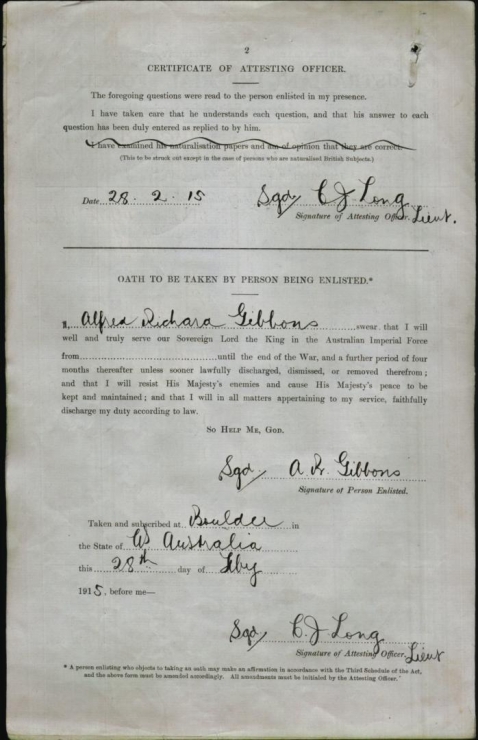 2
CERTIFICATE OF ATTESTING OFFICER.
The foregoing questions were read to the person enlisted in my presence.
I have taken care that he understands each question, and that his answer to each
question has been duly entered as replied to by him.
I have examined his naturalisation papers and am of opinion that they are correct.
(This to be struck out except in the case of persons who are naturalised British Subjects.)
Date 28 . 2 . 15 Sgd/ C J Long
Signature of Attesting Officer. Lieut.
OATH TO BE TAKEN BY PERSON BEING ENLISTED.*
I, Alfred Richard Gibbons swear that I will
well and truly serve our Sovereign Lord the King in the Australian Imperial Force
from until the end of the War, and a further period of four
months thereafter unless sooner lawfully discharged, dismissed, or removed therefrom;
and that I will resist His Majesty's enemies and cause His Majesty's peace to be
kept and maintained; and that I will in all matters appertaining to my service, faithfully
discharge my duty according to law.
SO HELP ME, GOD.
Sgd/ A R. Gibbons
Signature of Person Enlisted.
Taken and subscribed at Boulder in
the State of W Australia
this 28th day of Feby
1915, before me—
Sgd/ C. J Long
Signature of Attesting Officer. Lieut
* A person enlisting who objects to taking an oath may make an affirmation in accordance with the Third Schedule of the Act,
and the above form must be amended accordingly. All amendments must be initialed by the Attesting Officer.